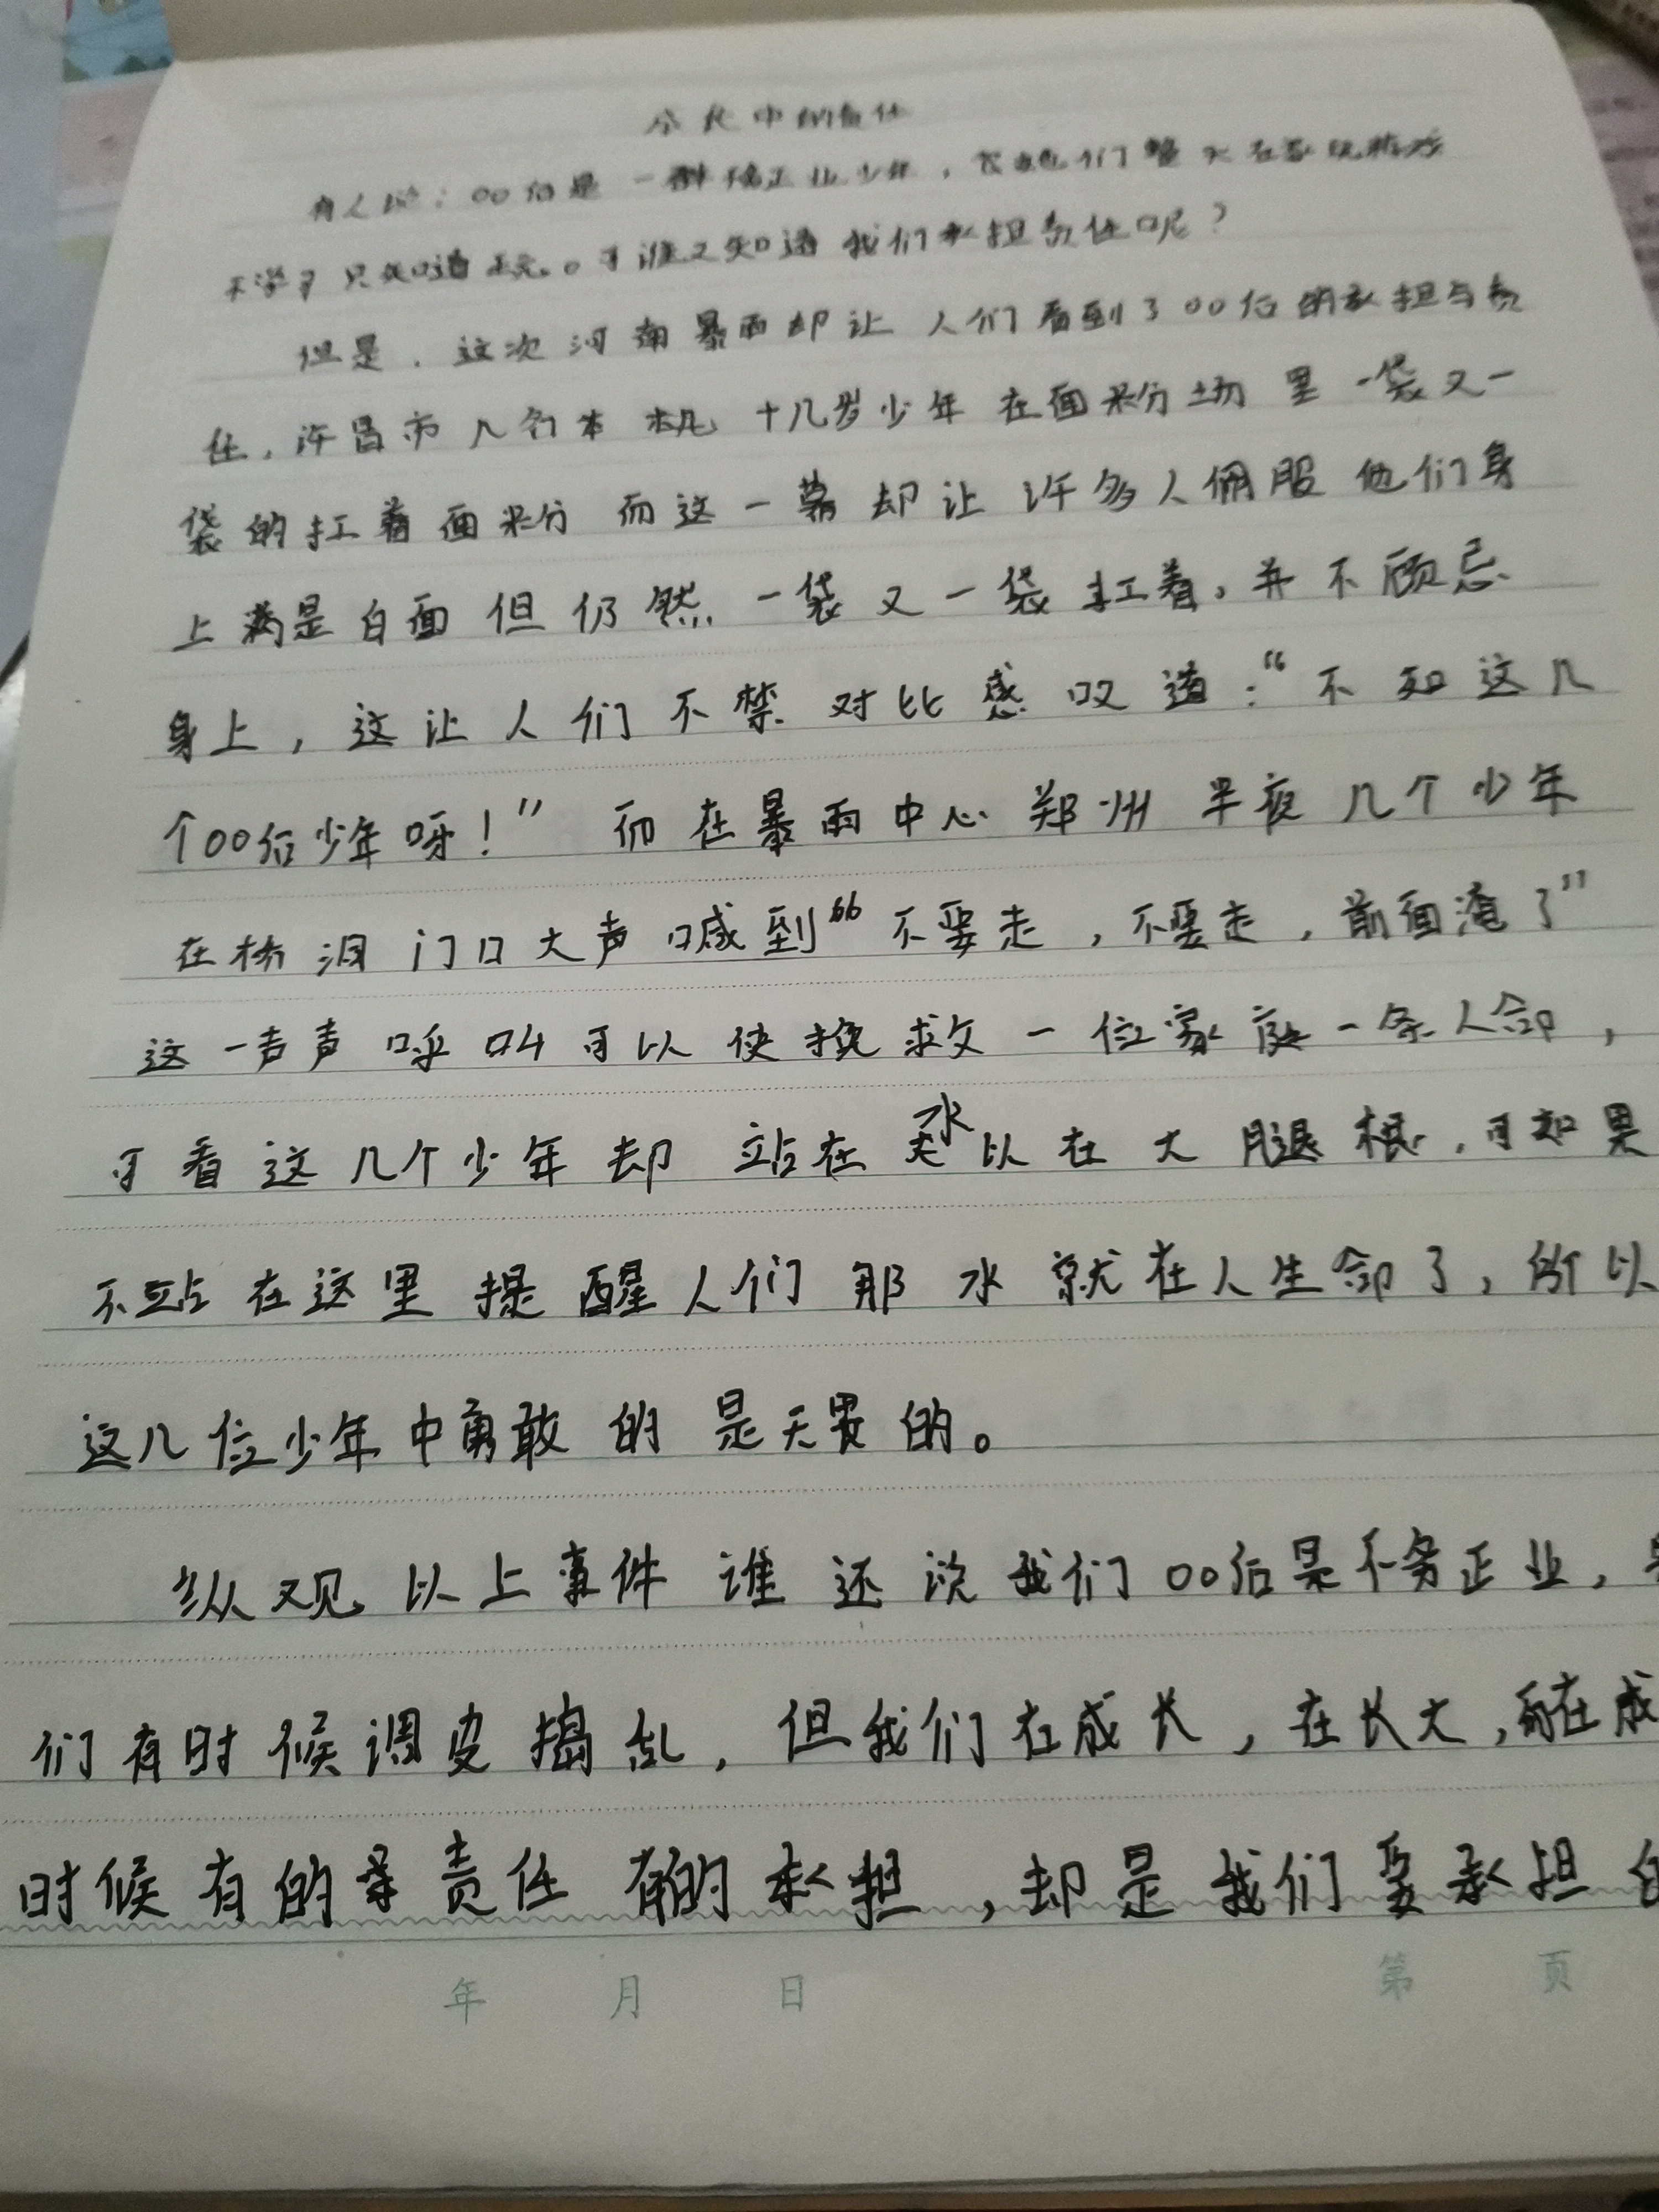 成长中的责任
有人说：00后是一群 正业少年，他们整天在家玩游戏
不学习只知道玩。可谁又知道我们承担责任呢？
但是，这次河南暴雨却让人们看到了00后的承担与责
任，许昌市几名 十几岁少年在面粉场里一袋又一
袋的扛着面粉而这一幕却让许多人佩服他们身
上满是白面但仍然一袋又一袋扛着，并不顾忌
身上，这让人们不禁对比感叹道：“不知这几
个00后少年呀！”而在暴雨中心郑州半夜几个少年
在 门口大声喊到“不要走，不要走，前面淹了”
这一声声呼叫可以使挽救一位家庭一条人命，
可看这几个少年却站在水以在大腿根，可如果
不站在这里提醒人们那水就在人生命了，所以
这几位少年中勇敢的是无畏的。
纵观以上事件谁还说我们00后是不务正业，
们有时候调皮捣乱，但我们在成长，在长大，在成
时候有的责任有的承担，却是我们要承担
年 月 日 第 页